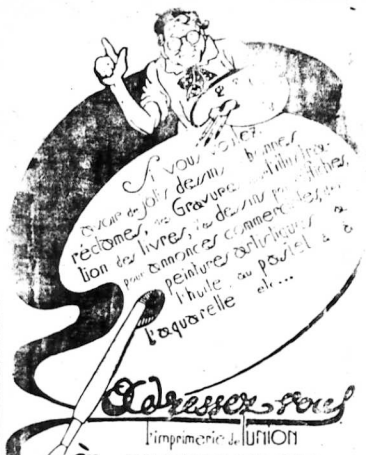 Si vous voulez
avoir de jolis dessins, bonnes
réclames, des Gravures
tion des livres, des dessins
pour annonces commerciales,
peintures artistiques à
l'huile, au pastel & à
l'aquarelle etc...
Adressez-vous
l'imprimerie de l'UNION